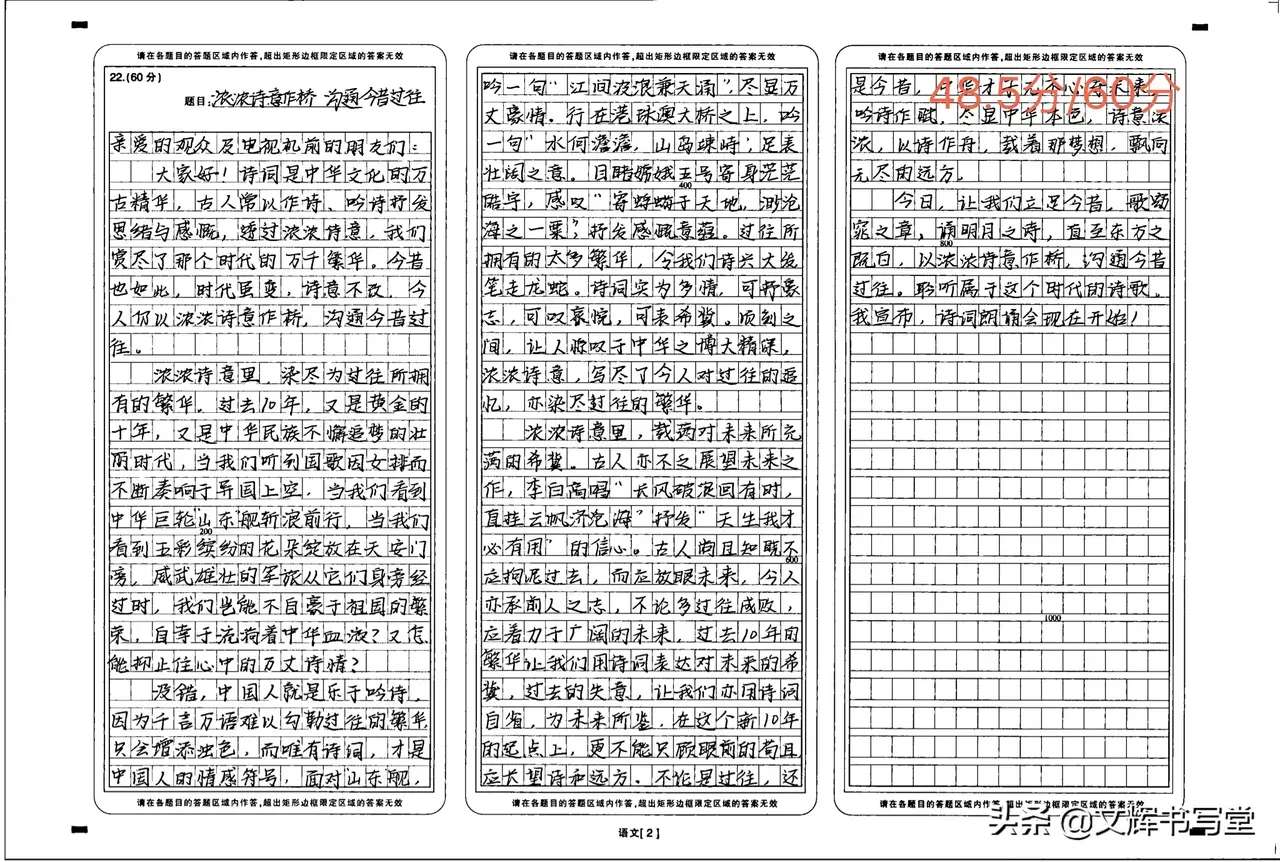 请在各题目的答题区域内作答,超出矩形边框限定区域的答案无效
22.(60分)
题目:浓浓诗意作桥 沟通今昔过往
亲爱的观众及电视机前的朋友们:
大家好!诗词是中华文化的万
古精华,古人常以作诗、吟诗抒发
思绪与感慨,透过浓浓诗意,我们
赏尽了那个时代的万千繁华。今昔
也如此,时代虽变,诗意不改,今
人仍以浓浓诗意作桥,沟通今昔过
往。
浓浓诗意里,染尽为过往所拥
有的繁华。过去10年,又是黄金的
十年,又是中华民族不懈追梦的壮
丽时代,当我们听到国歌因女排而
不断奏响于异国上空,当我们看到
中华巨轮"山东舰斩浪前行,当我们
200
看到五彩缤纷的花朵绽放在天安门
旁,威武雄壮的军旅从它们身旁经
过时,我们岂能不自豪于祖国的繁
荣,自幸于流淌着中华血液?又怎
能抑止住心中的万丈诗情?
没错,中国人就是乐于吟诗,
因为千言万语难以勾勒过往的繁华
只会增添浊色,而唯有诗词,才是
中国人的情感符号,面对"山东舰,
请在各题目的答题区域内作答,超出矩形边框限定区域的答案无效
请在各题目的答题区域内作答,超出矩形边框限定区域的答案无效
吟一句"江间波浪兼天涌",尽显万
丈豪情。行在港珠澳大桥之上,吟
一句"水何澹澹,山岛竦峙",足表
壮阔之意。目睹嫦娥五号寄身茫茫
400
酷宇,感叹"寄蜉蝣于天地,渺沧
海之一粟"抒发感慨意蕴。过往所
拥有的太多繁华,令我们诗兴大发
笔走龙蛇。诗词实为多情,可抒豪
志,可叹哀惋,可表希冀。顷刻之
间,让人惊叹于中华之博大精深,
浓浓诗意,写尽了今人对过往的追
忆,亦染尽过往的繁华。
浓浓诗意里,载满对未来所充
满的希冀。古人亦不乏展望未来之
作,李白高唱"长风破浪回有时,
直挂云帆济沧海"抒发"天生我才
必有用"的信心。古人尚且知晓不
600
应拘泥过去,而应放眼未来,今人
亦承前人之志,不论多过往成败,
应着力于广阔的未来,过去10年的
繁华让我们用诗词表达对未来的希
冀,过去的失意,让我们亦用诗词
自省,为未来所鉴,在这个新10年
的起点上,更不能只顾眼前的苟且
应长望诗和远方。不论是过往,还
请在各题目的答题区域内作答,超出矩形边框限定区域的答案无效
语文[2]
请在各题目的答题区域内作答,超出矩形边框限定区域的答案无效
是今昔,
48.5分/60分
吟诗作赋,尽显中华本色,诗意浓
浓,以诗作舟,载着那梦想,飘向
无尽的远方。
今日,让我们立足今昔,歌颂
窕之章,诵明月之诗,直至东方之
800
既白,以浓浓诗意作桥,沟通今昔
过往。聆听属于这个时代的诗歌。
我宣布,诗词朗诵会现在开始!
1000
请在各题目的答题区域内作答,超出矩形边框限定区域的答案无效
头条@文辉书写堂